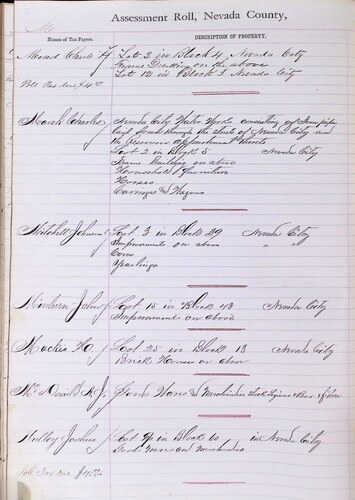 M
Assessment Roll, Nevada County,
Names of Tax Payers.
DESCRIPTION OF PROPERTY.
Mead Charles H Lot 2 in Block 4 Nevada City
Frame Dwelling on the above
Poll Tax due $4 Lot 12 in Block 3 Nevada City
Marsh Charles Nevada City Water Works consisting of
through the streets of Nevada City and
the Reservoir appurtenant thereto
Lot 2 in Block 5 Nevada City
Frame Building on above
Household Furniture
Horses
Carriages & Wagons
Mitchell Johnson Lot 3 in Block 29 Nevada City
Improvements on above " "
Cows
Yearlings
Minturn John Lot 15 in Block 43 Nevada City
Improvements on above
Mackie H. Lot 25 in Block 13 Nevada City
Brick House on above
Goods Wares & Merchandise
Lot 9 in Block 10 in Nevada City
and Merchandise
Poll Tax due $4